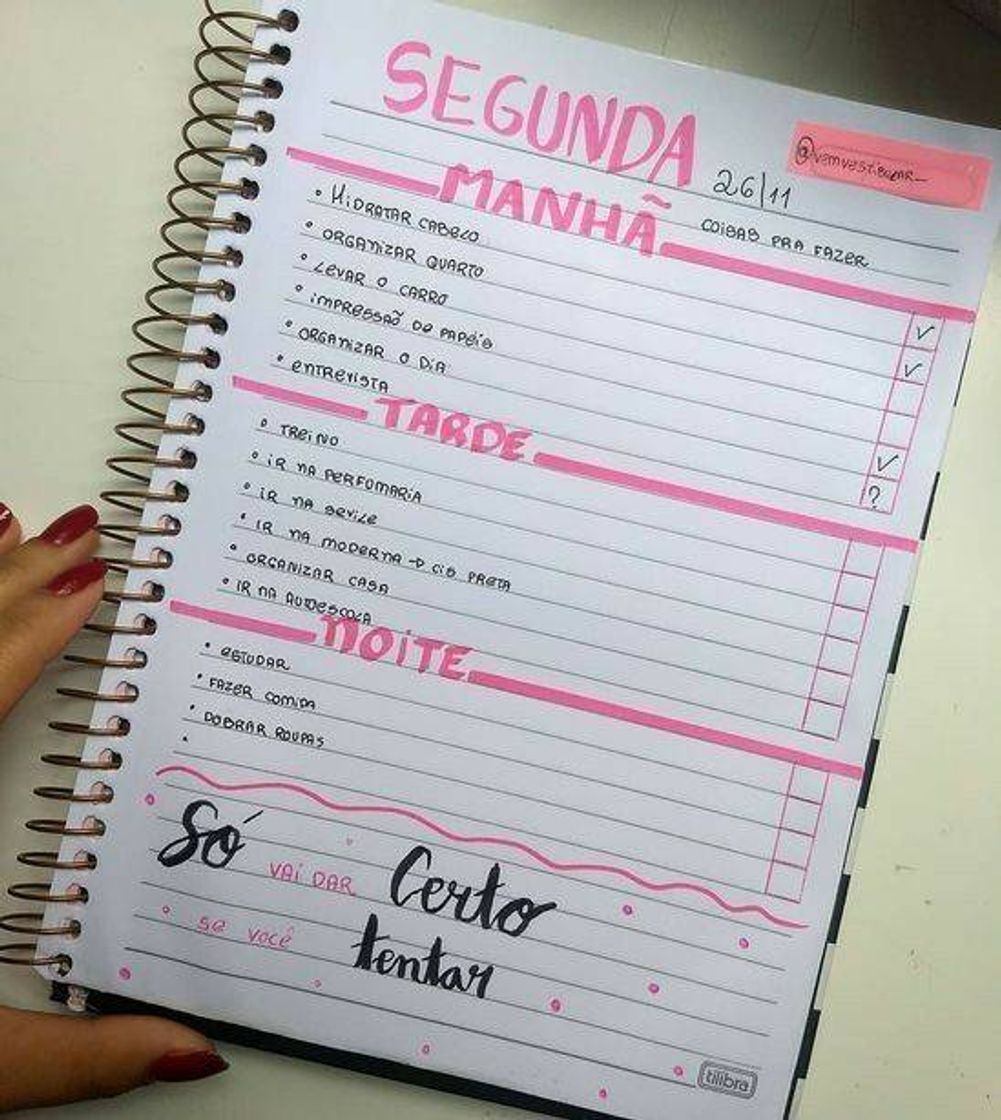 SEGUNDA
@vemvestibular_
26/11
MANHÃ
COISAS PRA FAZER
• HIDRATAR CABELO
• ORGANIZAR QUARTO
• LEVAR O CARRO
• IMPRESSAÕ DE PAPÉIS
• ORGANIZAR O DIA
• ENTREVISTA
?
TARDE
• TREINO
• IR NA PERFUMARIA
• IR NA
• IR NA MODERNA → PRETA
• ORGANIZAR CASA
• IR NA AUTOESCOLA
NOITE
• ESTUDAR
• FAZER COMIDA
• DOBRAR ROUPAS
•
Só VAI DAR Certo
se você tentar
tilibra